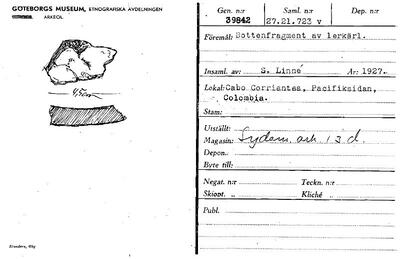 GÖTEBORGS MUSEUM, ETNOGRAFISKA AVDELNINGEN
ARKEOL.
4,5cm
Elanders, Gbg
Gen. n:r Saml. n:r Dep. n:r
39842 27.21.723 v
Föremål: Bottenfragment av lerkärl.
Insaml. av: S. Linné År: 1927.
Lokal: Cabo Corrientes, Pacifiksidan,
Colombia.
Stam:
Utställt:
Magasin: Sydam. ark. 13 d.
Depon.
Byte till:
Negat. n:r Teckn. n:r
Skiopt. „ Kliché „
Publ.